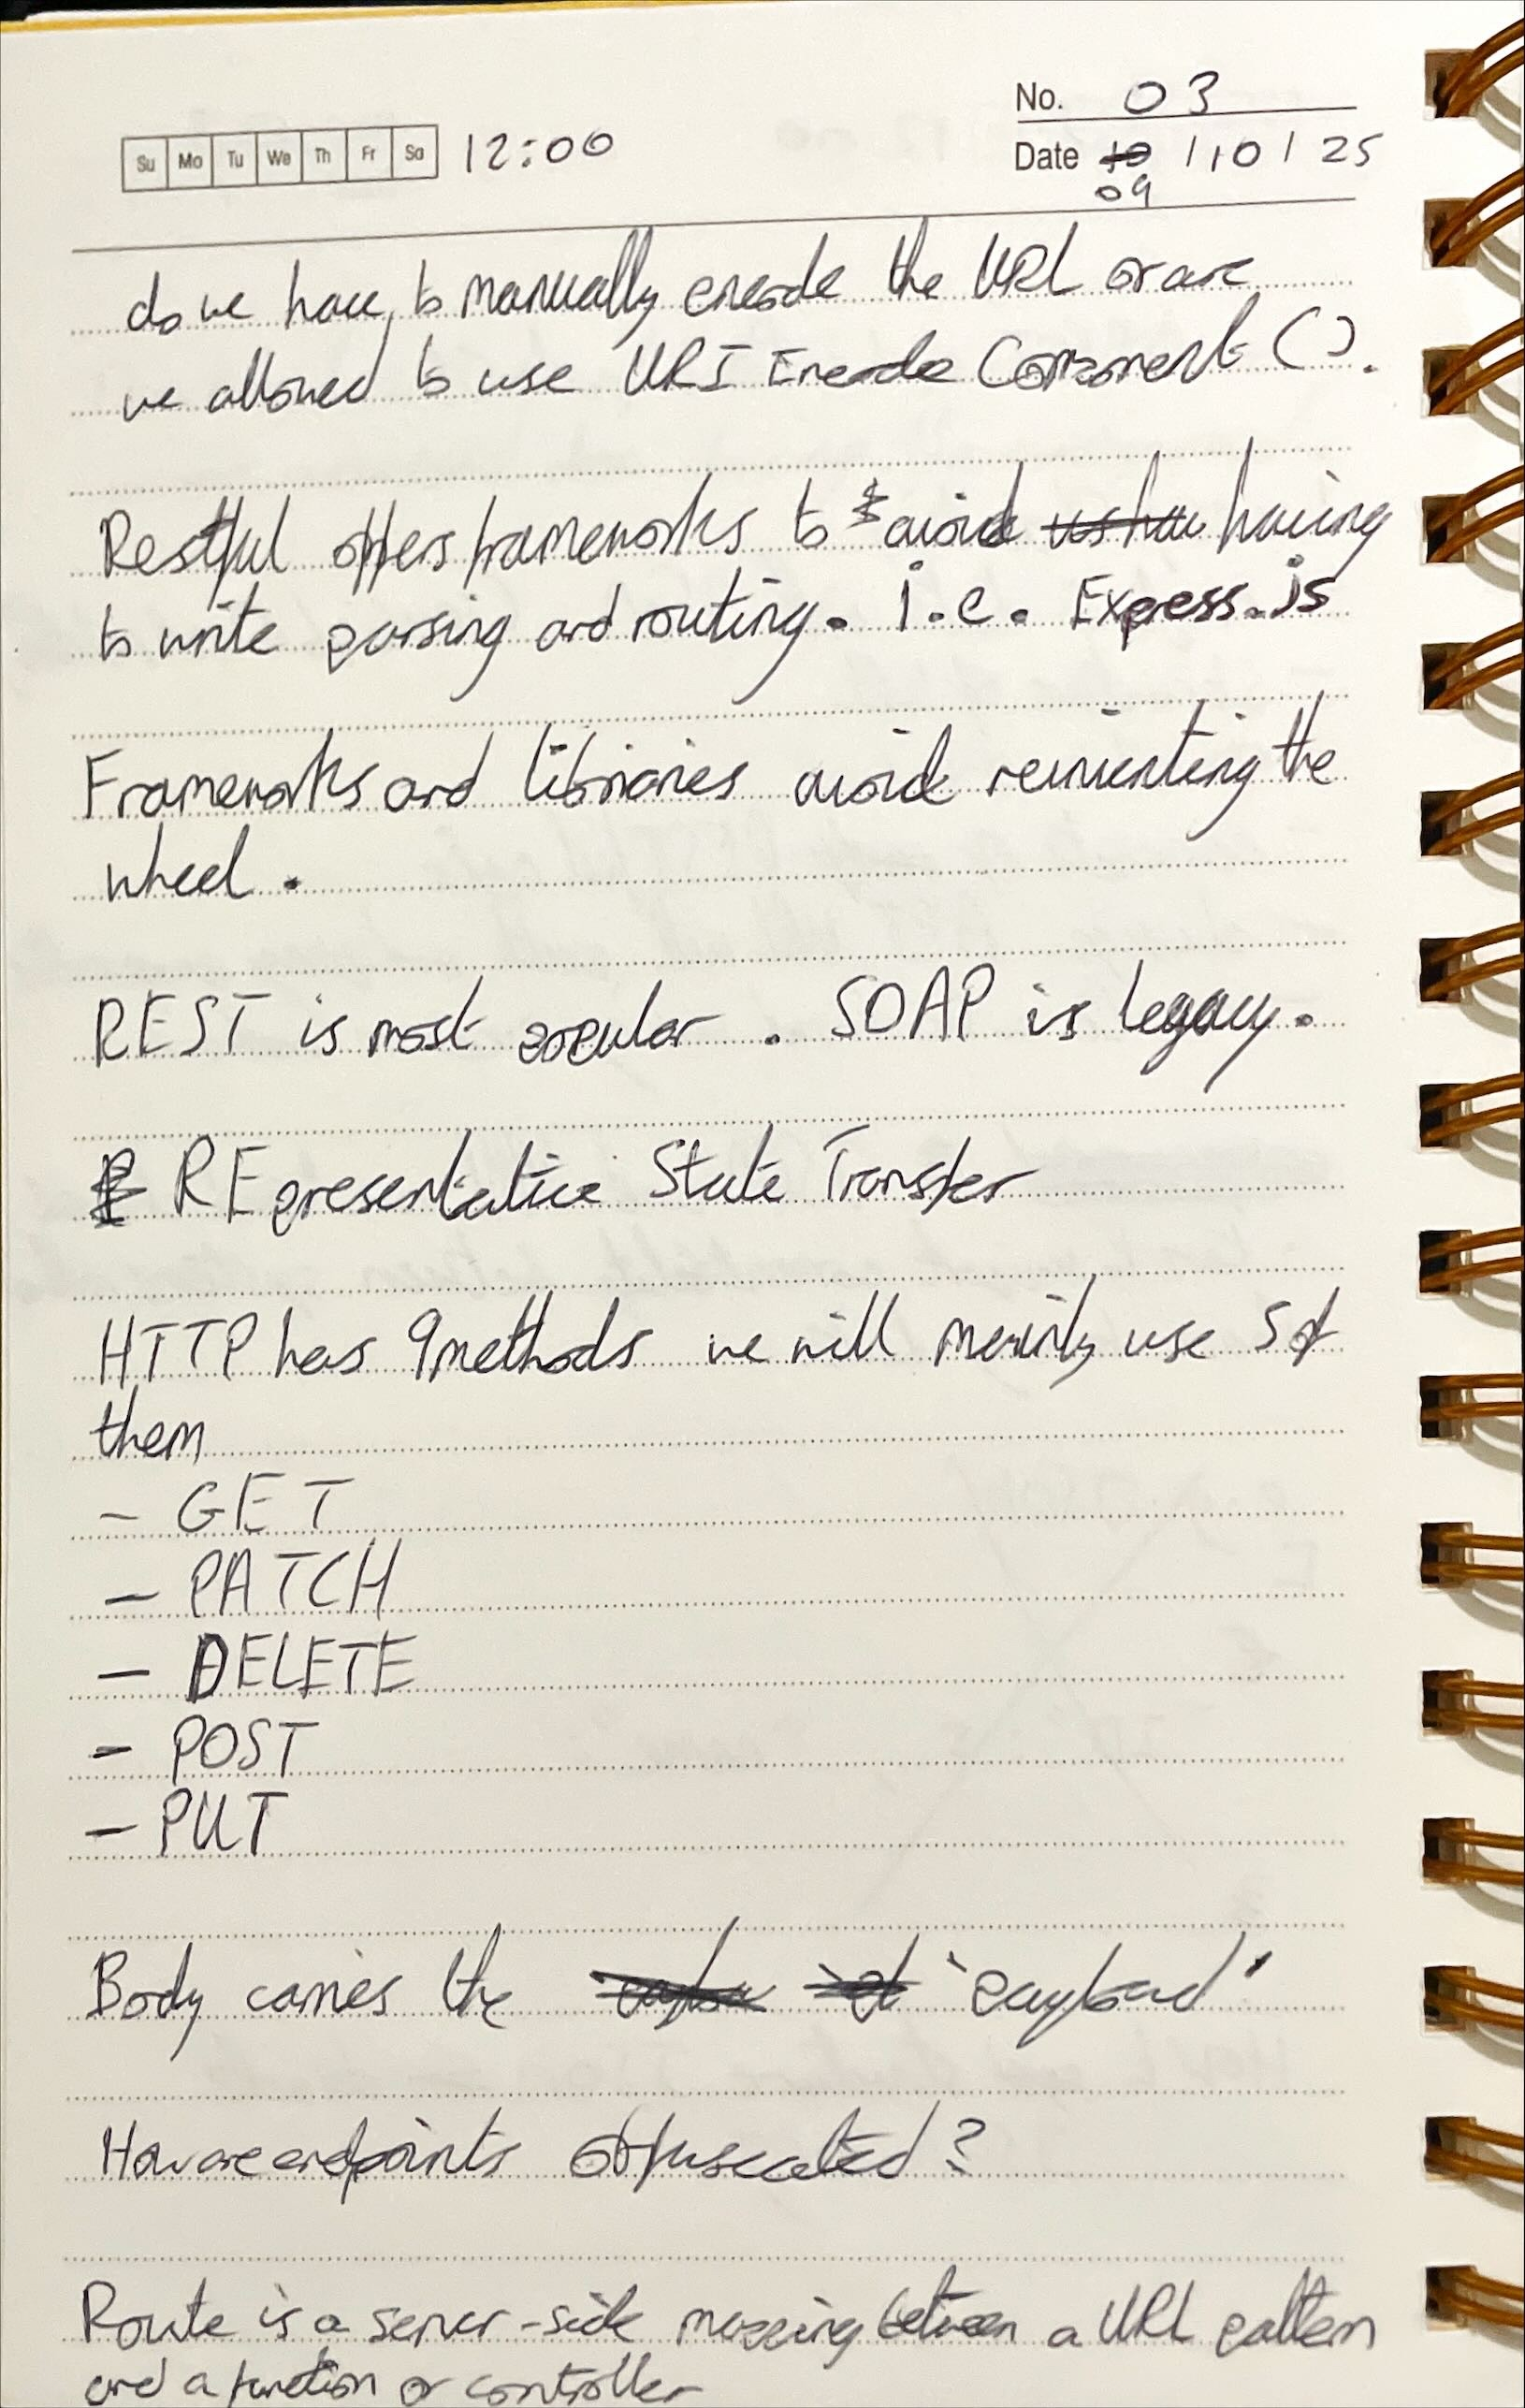 No. 03
Su Mo Tu We Th Fr Sa 12:00
Date 10 / 10 / 25
09
do we have to manually encode the URL or are
we allowed to use URI Encode Component ().
Restful offers frameworks to avoid us hav having
to write parsing and routing. i.e. Express.js
Frameworks and libraries avoid reinventing the
wheel.
REST is most popular. SOAP is legacy.
REpresentative State Transfer
HTTP has 9 methods we will mainly use 5 of
them
- GET
- PATCH
- DELETE
- POST
- PUT
Body carries the 'payload'
How are endpoints obfuscated?
Route is a server-side mapping between a URL pattern
and a function or controller